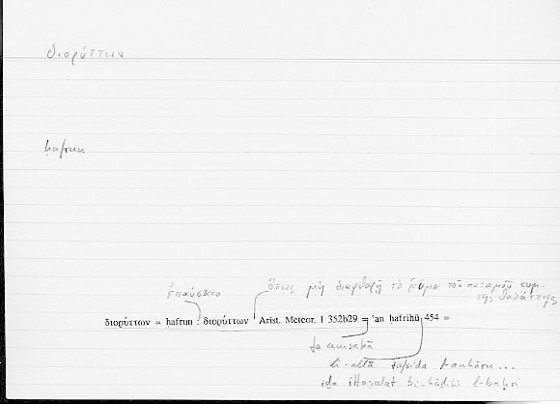 διορύττων
ḥafrun
ἐπαύσατο ὅπως μὴ διαφθαρῇ τὸ ῥεῦμα τοῦ ποταμοῦ συμ-
της θαλάττης
διορύττων = ḥafrun : διορύττων Arist. Meteor. I 352b29 = ʿan ḥafrihū 454 =
fa amsaka
li-allā
iḏa ittaṣalat bi-hāḏihi l-baḥri